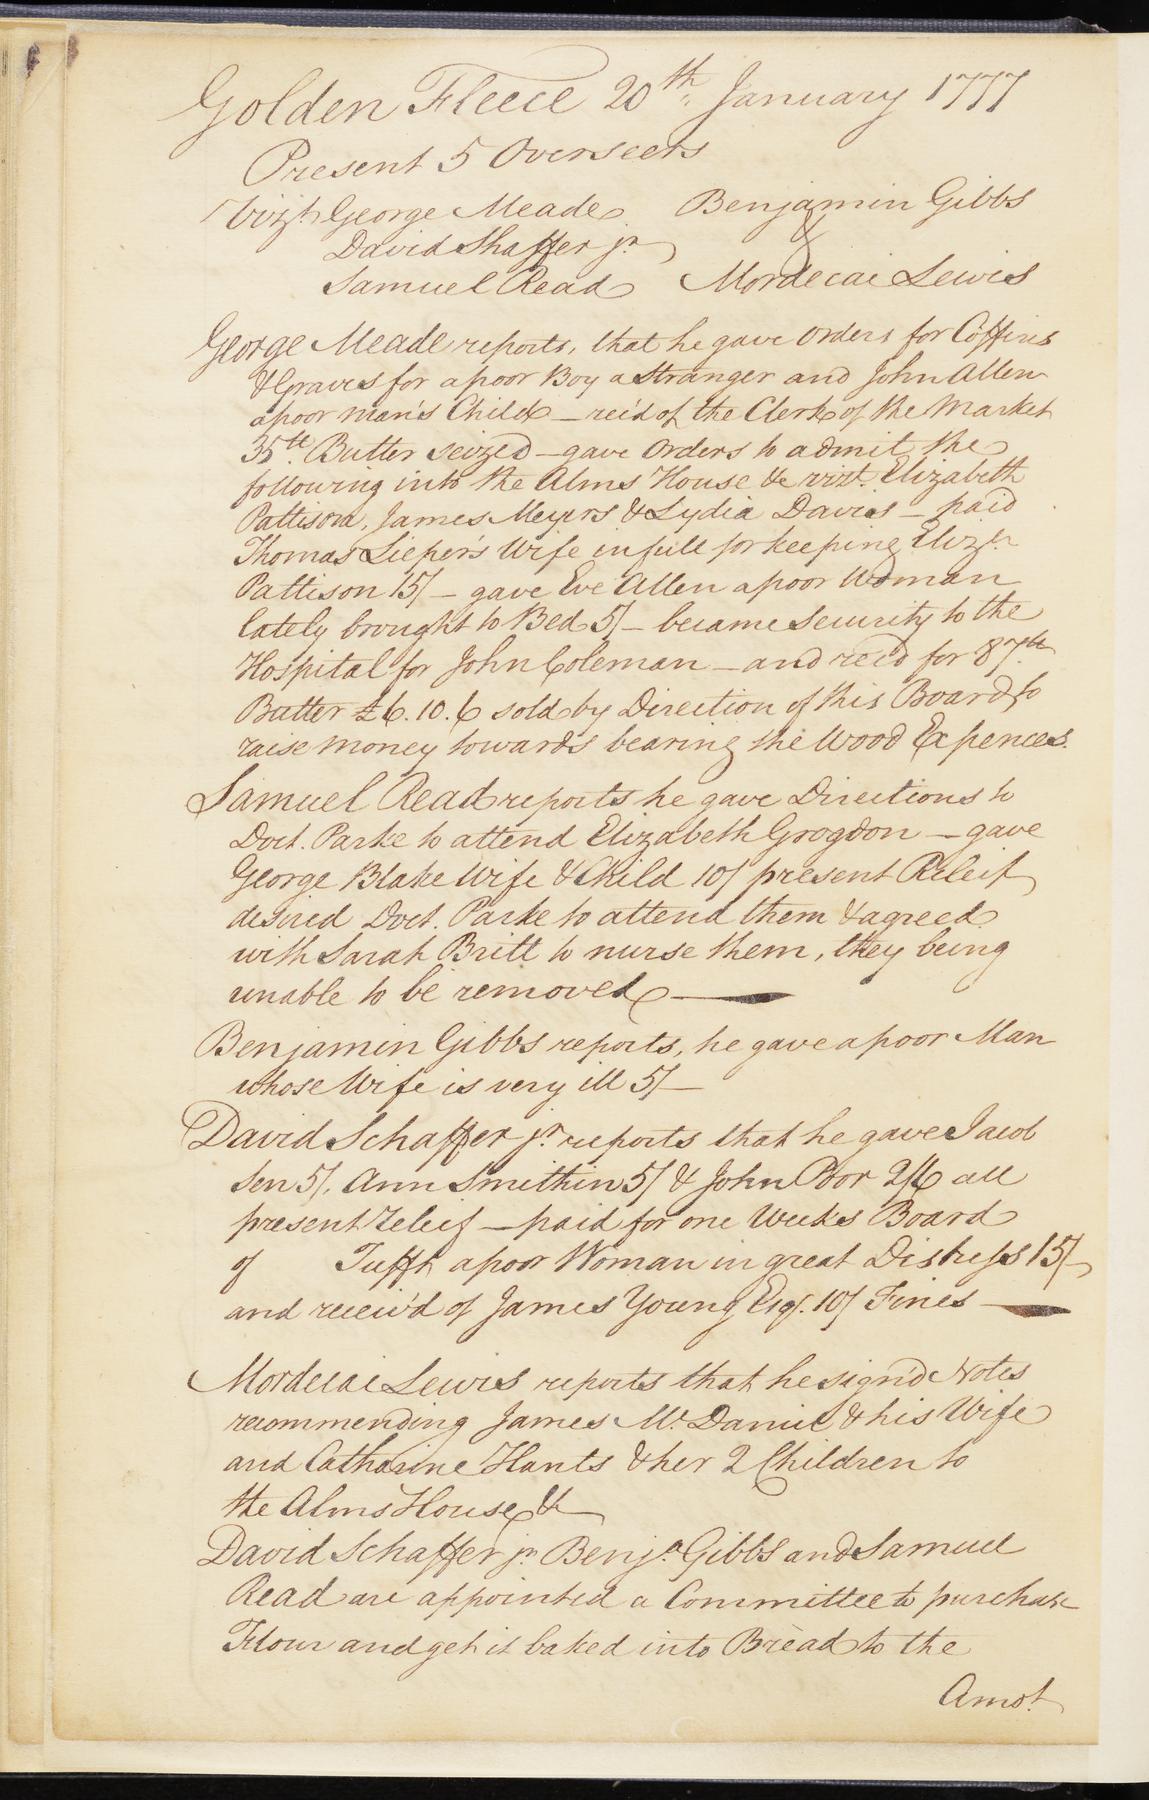 Golden Fleece 20th January 1777
Present 5 Overseers
Vizt. George Meade Benjamin Gibbs
David Shaffer jr &
Samuel Read Mordecai Lewis
George Meade reports, that he gave orders for Coffins
& Graves for a poor Boy a Stranger and John Allen
a poor man's Child — rec'd of the Clerk of the Market
35lb. Butter seized — gave Orders to admit the
following into the Alms House &c vizt. Elizabeth
Pattison, James Meyers & Lydia Davis — paid
Thomas Lieper's Wife in full for keeping Elizh.
Pattison 15/ — gave Eve Allen a poor Woman
lately brought to Bed 5/ — became Security to the
Hospital for John Coleman — and rec'd for 87lb
Butter £6.10.6 sold by Direction of this Board to
raise money towards bearing the Wood Expences.
Samuel Read reports he gave Directions to
Doct. Parke to attend Elizabeth Grogdon — gave
George Blake Wife & Child 10/ present Releif
desired Doct. Parke to attend them & agreed
with Sarah Britt to nurse them, they being
unable to be removed —
Benjamin Gibbs reports, he gave a poor Man
whose Wife is very ill 5/ —
David Schaffer jr. reports that he gave Jacob
Sen 5/. Ann Smithin 5/ & John Poor 2/6 all
present releif — paid for one Weeks Board
of Tufft a poor Woman in great Distress 15/
and receiv'd of James Young Esqr. 10/ Fines —
Mordecai Lewis reports that he sign'd Notes
recommending James Mc. Daniel & his Wife
and Catharine Hants & her 2 Children to
the Alms House &c
David Schaffer jr. Benja. Gibbs and Samuel
Read are appointed a Committee to purchase
Flour and get it baked into Bread to the
Amot.